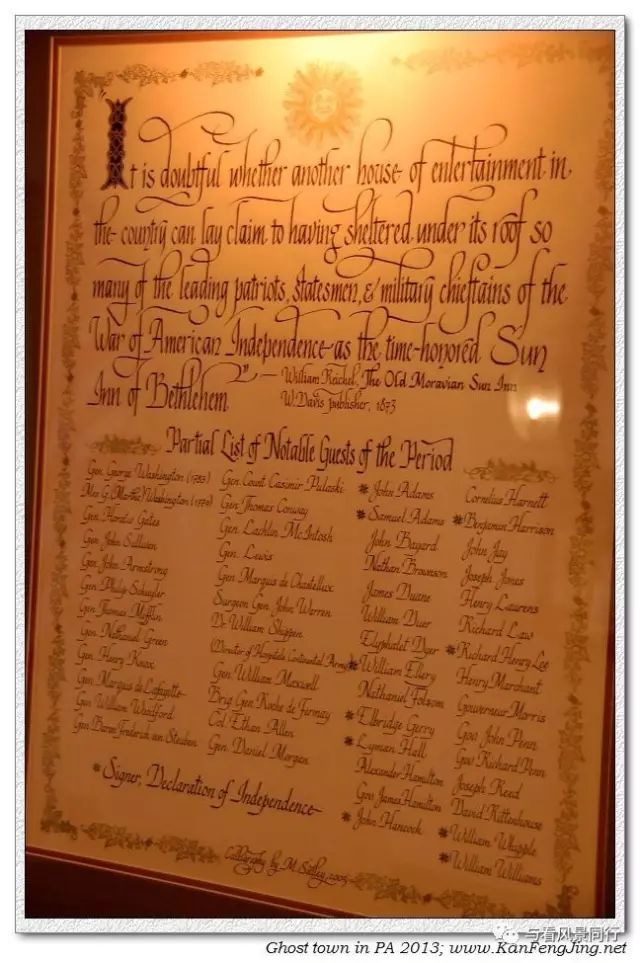 It is doubtful whether another house of entertainment in
the country can lay claim to having sheltered under its roof so
many of the leading patriots, statesmen, & military chieftains of the
War of American Independence as the time-honored Sun
Inn of Bethlehem."— William Reichel, The Old Moravian Sun Inn
W. Davis publisher, 1873
Partial List of Notable Guests of the Period
Gen. George Washington (1782)
Mrs G. (Martha) Washington (1779)
Gen. Horatio Gates
Gen. John Sullivan
Gen. John Armstrong
Gen. Philip Schuyler
Gen. Thomas Mifflin
Gen. Nathaniel Green
Gen. Henry Knox
Gen. Marquis de Lafayette
Gen. William Woodford
Gen. Baron Frederick von Steuben
Gen. Count Casimir Pulaski
Gen. Thomas Conway
Gen. Lachlin McIntosh
Gen. Lewis
Gen. Marquis de Chastellux
Surgeon Gen. John Warren
Dr. William Shippen
(Director of Hospitals Continental Army)
Gen. William Maxwell
Brig. Gen. Roche de Fermay
Col. Ethan Allen
Gen. Daniel Morgan
* John Adams
* Samuel Adams
John Bayard
Nathan Brownson
James Duane
William Duer
Elyphalet Dyer
* William Ellery
Nathaniel Folsom
* Elbridge Gerry
* Lyman Hall
Alexander Hamilton
Gov James Hamilton
* John Hancock
Cornelius Harnett
* Benjamin Harrison
John Jay
Joseph Jones
Henry Laurens
Richard Law
* Richard Henry Lee
Henry Marchant
Gouverneur Morris
Gov John Penn
Gov Richard Penn
Joseph Reed
David Rittenhouse
* William Whipple
* William Williams
* Signer, Declaration of Independence
Calligraphy by M. 2005
与看风景同行
Ghost town in PA 2013; www.KanFengJing.net